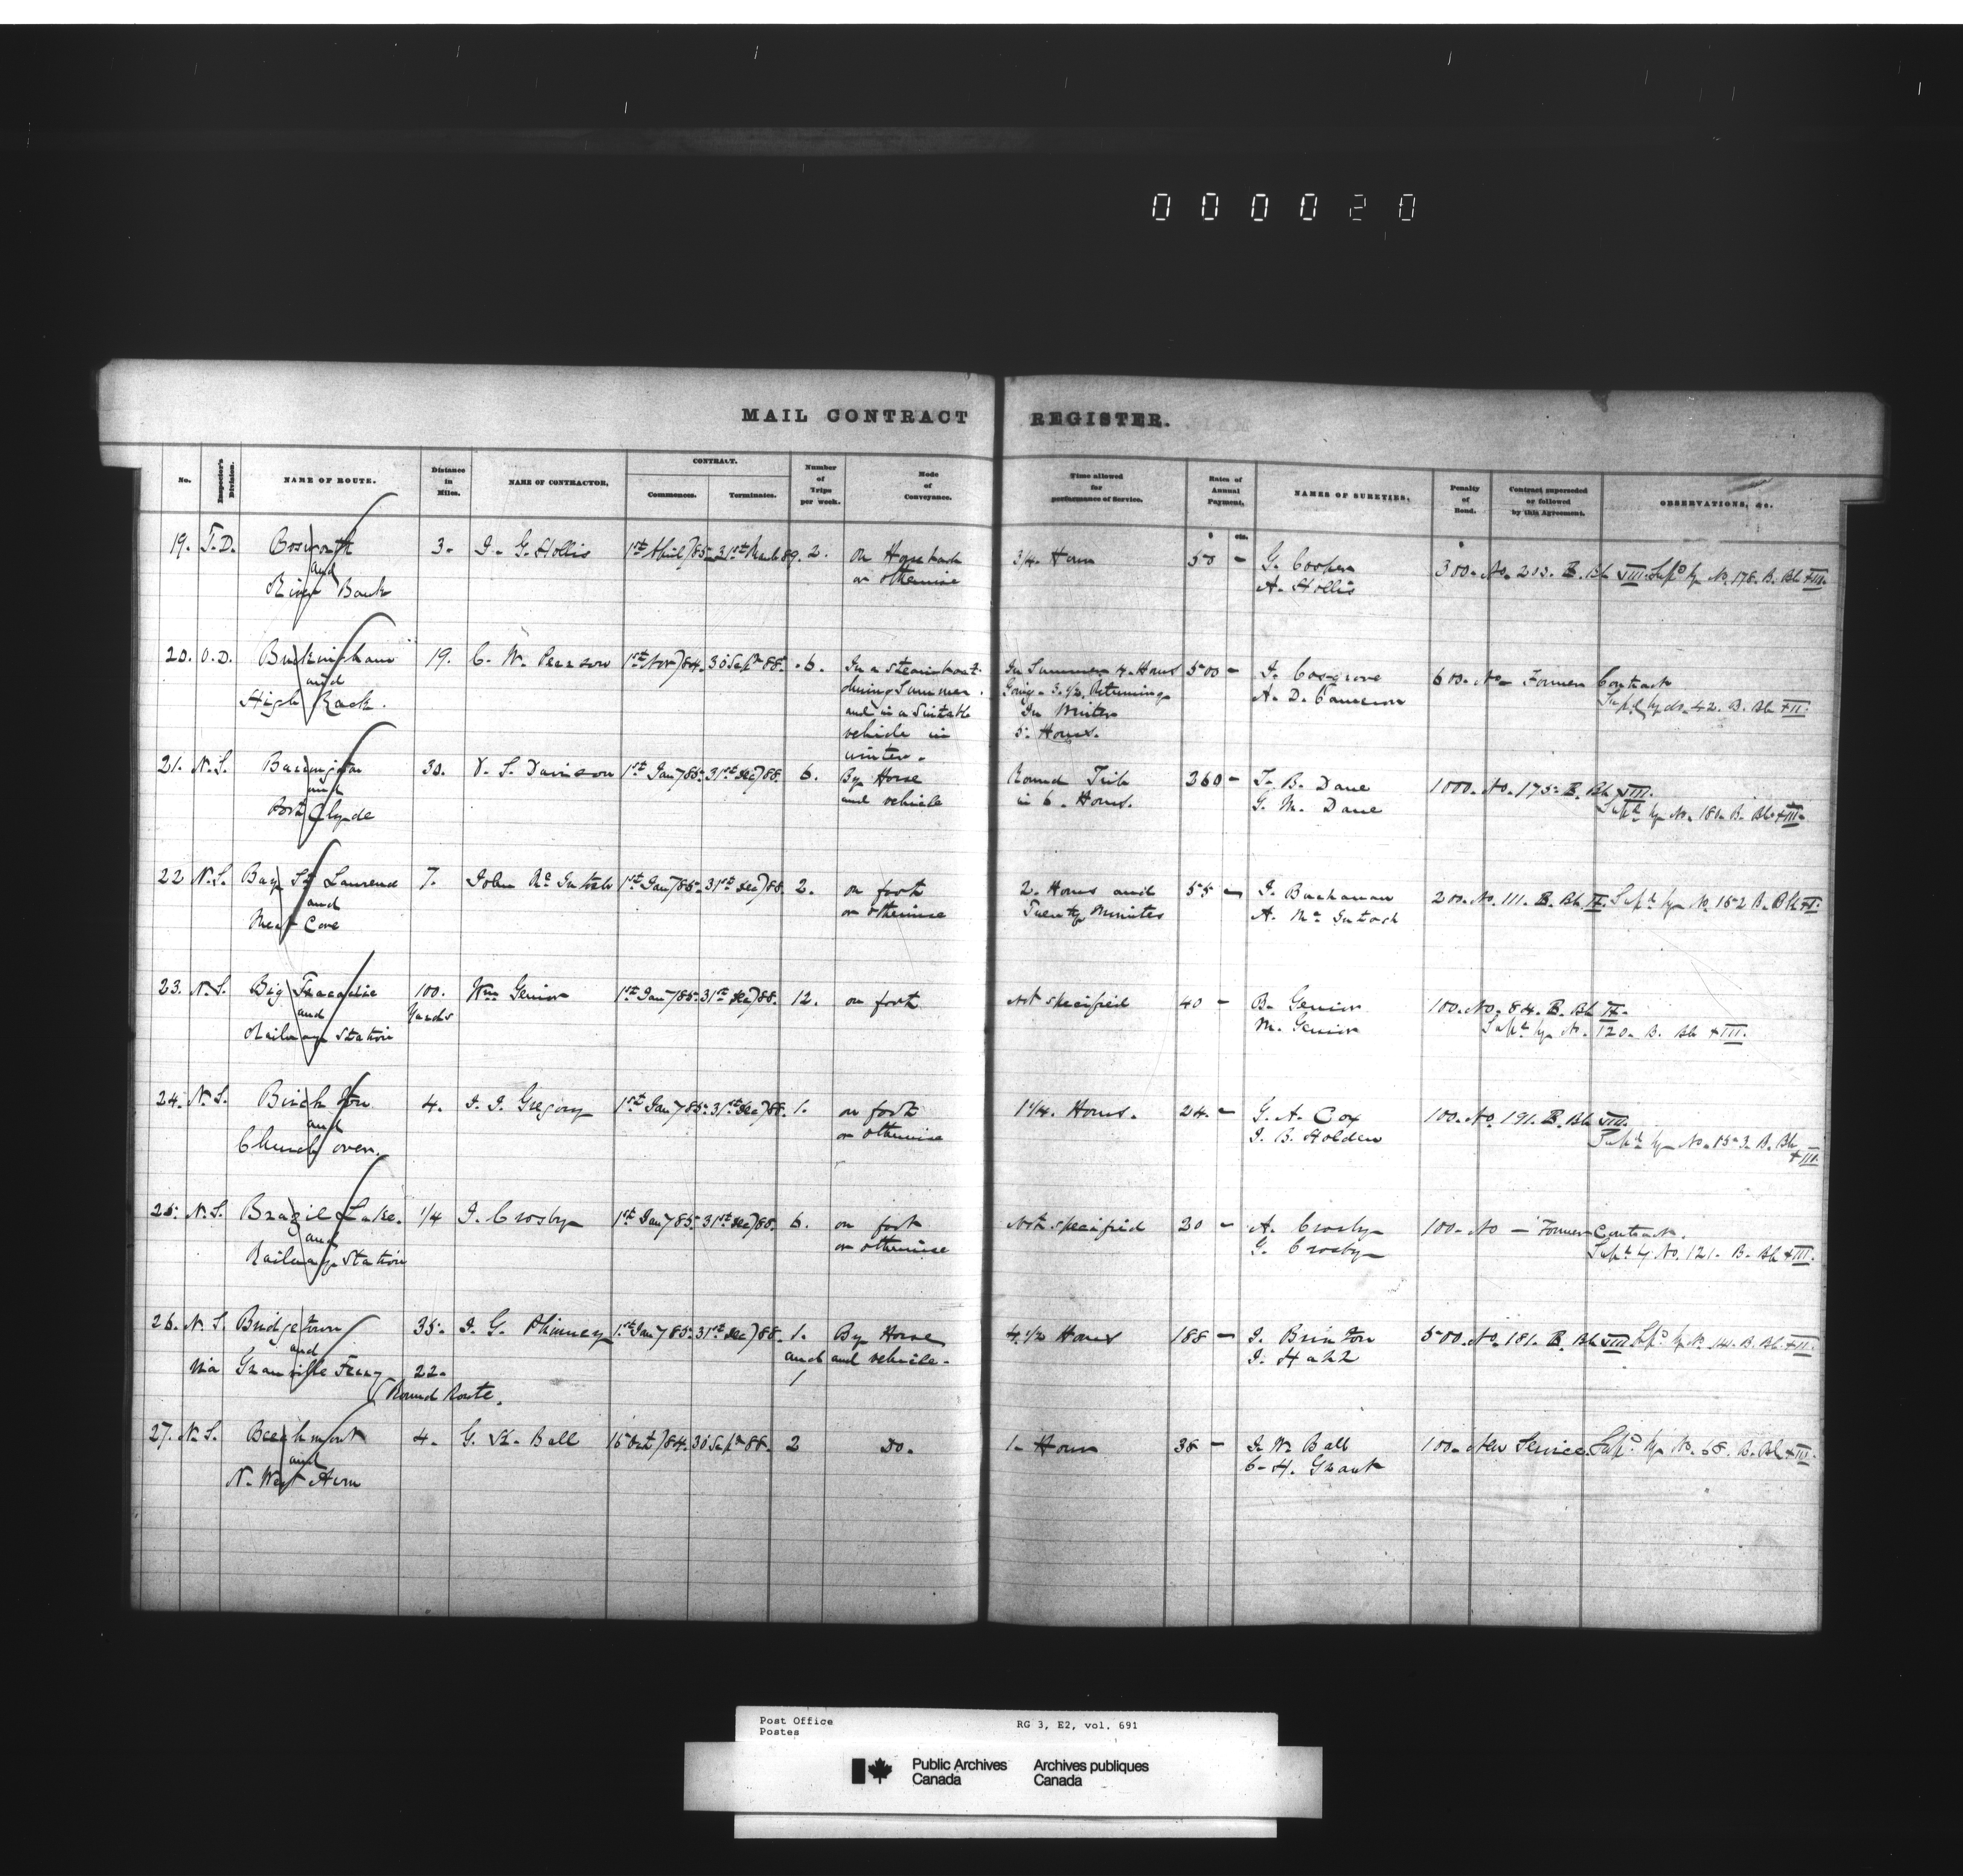 000020
MAIL CONTRACT REGISTER.
No. Inspector's Division. NAME OF ROUTE. Distance in Miles. NAME OF CONTRACTOR. CONTRACT. Commences. Terminates. Number of Trips per week. Mode of Conveyance. Time allowed for performance of Service. Rates of Annual Payment. $ cts. NAMES OF SURETIES. Penalty of Bond. $ Contract superseded or followed by this Agreement. OBSERVATIONS, &c.
19. T.D. Bosworth 3. J. G. Hollis 1st April/85 31st March 89. 2. On Horseback 3/4 Hour 50 - G. Cooper 300. No. 203. B. Bk VIII. Supd by No. 178. B. Bk XIII.
and or otherwise A. Hollis
River Bank
20. O.D. Buckingham 19. C. W. Pearson 1st Nov/84. 30 Sept 88. 6. In a steamboat In Summer 4 Hours 500 - J. Cosgrove 600. No - Former Contract
and during Summer. Going - 3 1/2 Returning A. D. Cameron
High Rock. and in a Suitable In Winter
vehicle in 5 Hours.
winter.
21. N.S. Barrington 30. V. S. Davison 1st Jany 85 31st Dec/88. 6. By Horse Round Trip 360 - T. B. Dane 1000. No. 175 B. Bk VIII.
and and vehicle in 6. Hours. G. M. Dane Supd by No. 181. B. Bk XIII.
Port Clyde
22 N.S. Bay St Laurend 7. John McIntosh 1st Jany 85. 31st Dec/88. 2. on foot 2. Hours and 55 - J. Buchanan 200. No. 111. B. Bk IX. Supd by No. 152 B. Bk
and or otherwise Twenty Minutes A. McIntosh
Meat Cove
23. N.S. Big Tracadie 100. Wm Genior 1st Jany 85. 31st Dec/88. 12. on foot not specified 40 - B. Genior 100. No. 84. B. Bk IX.
and Yards M. Genior Supd by No. 120. B. Bk XIII.
Railway Station
24. N.S. Birch Ton 4. J. J. Gregory 1st Jany 85. 31st Dec/88. 1. on foot 1 1/4. Hours. 24. - G. A. Cox 100. No. 191. B. Bk VIII.
and or otherwise J. B. Holden Supd by No. 153. B. Bk
Church over. XIII.
25. N.S. Brazil Lake. 1/4 J. Crosby 1st Jany 85. 31st Dec/88. 6. on foot Not specified 30 - A. Crosby 100. No - Former Contract.
and or otherwise G. Crosby Supd by No. 121. B. Bk XIII.
Railway Station
26. N.S. Bridgetown 35. J. G. Phinney 1st Jany 85. 31st Dec/88. 1. By Horse 4 1/2 Hours 188 - J. Brinton 500. No. 181. B. Bk VIII Supd by No. 141. B. Bk
and and and vehicle. J. Hall
via Granville Ferry 22. 1
(Round Route.
27. N.S. Beechmont 4. G. H. Ball 16 Oct/84. 30 Sept 88. 2 Do. 1. Hour 38 - J. W. Ball 100. New Service. Supd by No. 68. B. Bk
and C. H. Grant
N. West Arm
Post Office RG 3, E2, vol. 691
Postes
Public Archives Archives publiques
Canada Canada